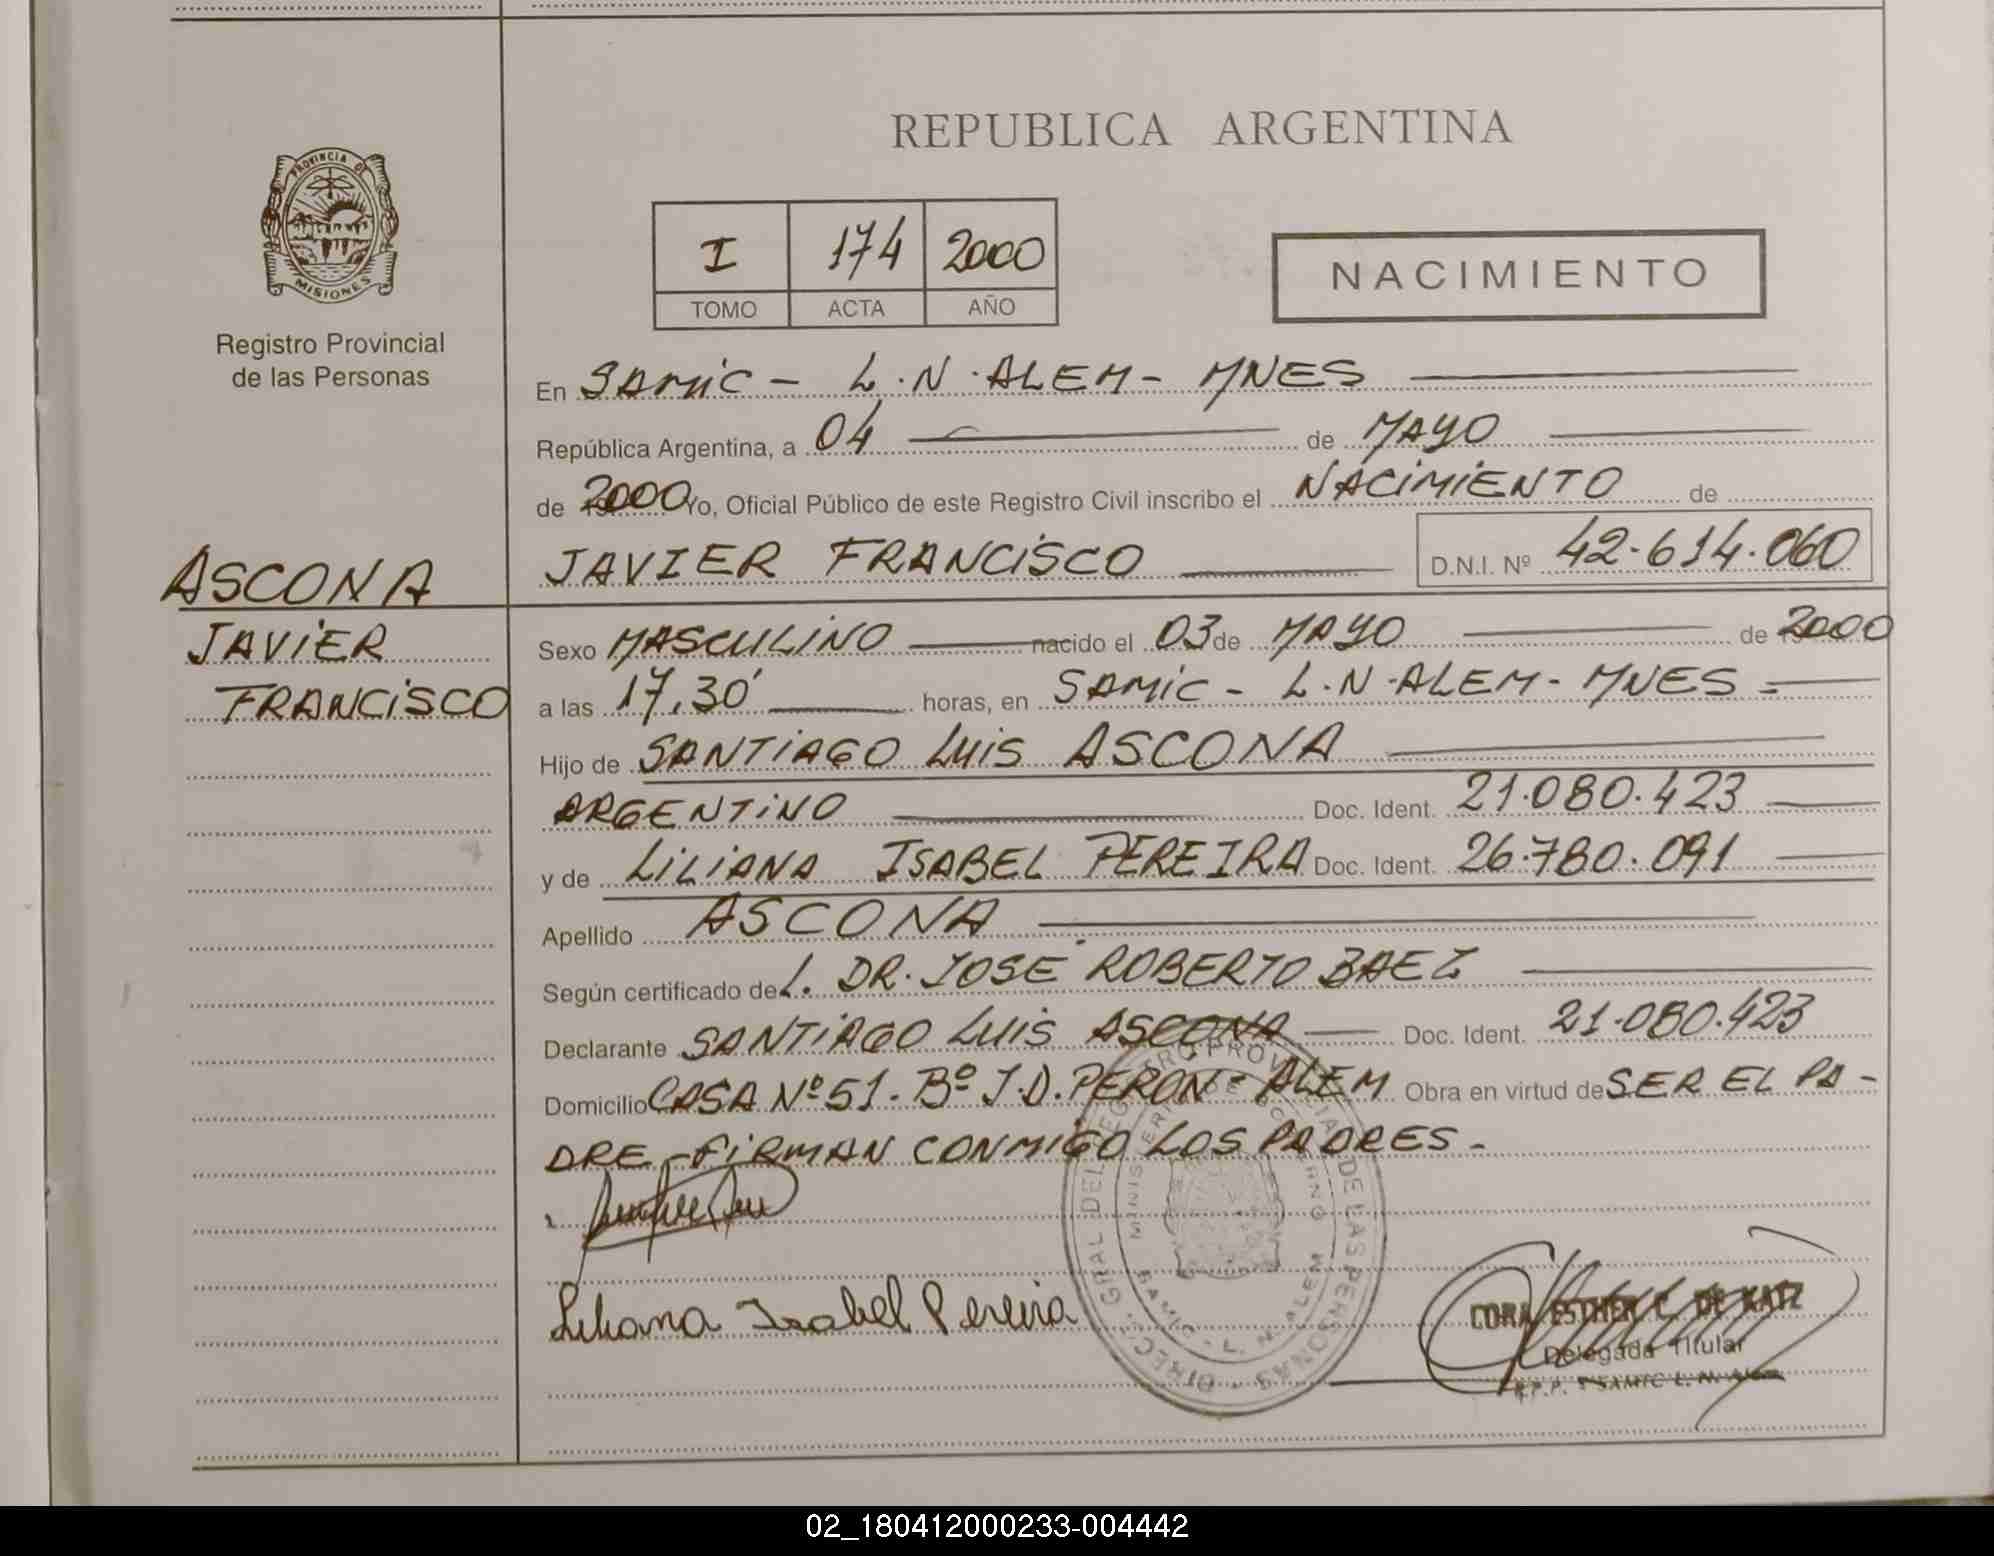 REPUBLICA ARGENTINA
PROVINCIA DE
MISIONES
Registro Provincial
de las Personas
I 174 2000
TOMO ACTA AÑO
NACIMIENTO
En SAMIC - L.N.ALEM - MNES
República Argentina, a 04 de MAYO
de 2000 Yo, Oficial Público de este Registro Civil inscribo el NACIMIENTO de
JAVIER FRANCISCO D.N.I. Nº 42.614.060
ASCONA
JAVIER
FRANCISCO
Sexo MASCULINO nacido el 03 de MAYO de 2000
a las 17,30' horas, en SAMIC - L.N.ALEM - MNES
Hijo de SANTIAGO LUIS ASCONA
ARGENTINO Doc. Ident. 21.080.423
y de LILIANA ISABEL PEREIRA Doc. Ident. 26.780.091
Apellido ASCONA
Según certificado del. DR. JOSE ROBERTO BAEZ
Declarante SANTIAGO LUIS ASCONA Doc. Ident. 21.080.423
Domicilio CASA Nº 51. Bº J.D. PERON - ALEM Obra en virtud de SER EL PA-
DRE - FIRMAN CONMIGO LOS PADRES -
Liliana Isabel Pereira
DIREC. GRAL DEL REGISTRO PROVINCIAL DE LAS PERSONAS
MINISTERIO DE GOBIERNO
SAMIC - L. N. ALEM
CORA ESTHER C. DE KATZ
Delegada Titular
R.P.P. SAMIC L. N. Alem
02_180412000233-004442